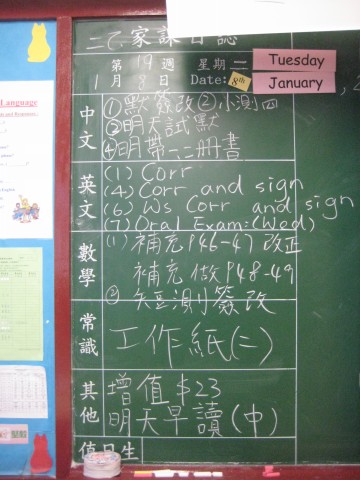 二乙家課日誌
第19週 星期二 Tuesday
1月8日 Date: 8th January
中文
①默簽改②小測四
③明天試默
④明帶一、二冊書
英文
(1) Corr
(4) Corr and sign
(6) Ws Corr and sign
(7) Oral Exam: (Wed)
數學
(1) 補充P46-47改正
補充做P48-49
② 短測簽改
常識
工作紙(二)
其他
增值$23
明天早讀(中)
值日生
Language